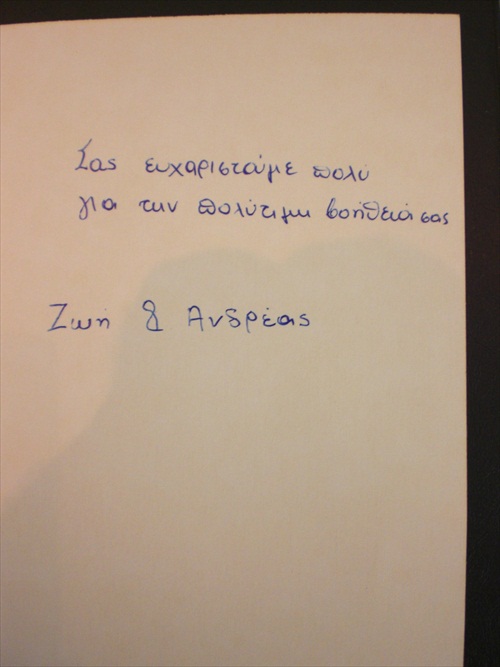 Σας ευχαριστούμε πολύ
για την πολύτιμη βοήθειά σας
Ζωή & Ανδρέας